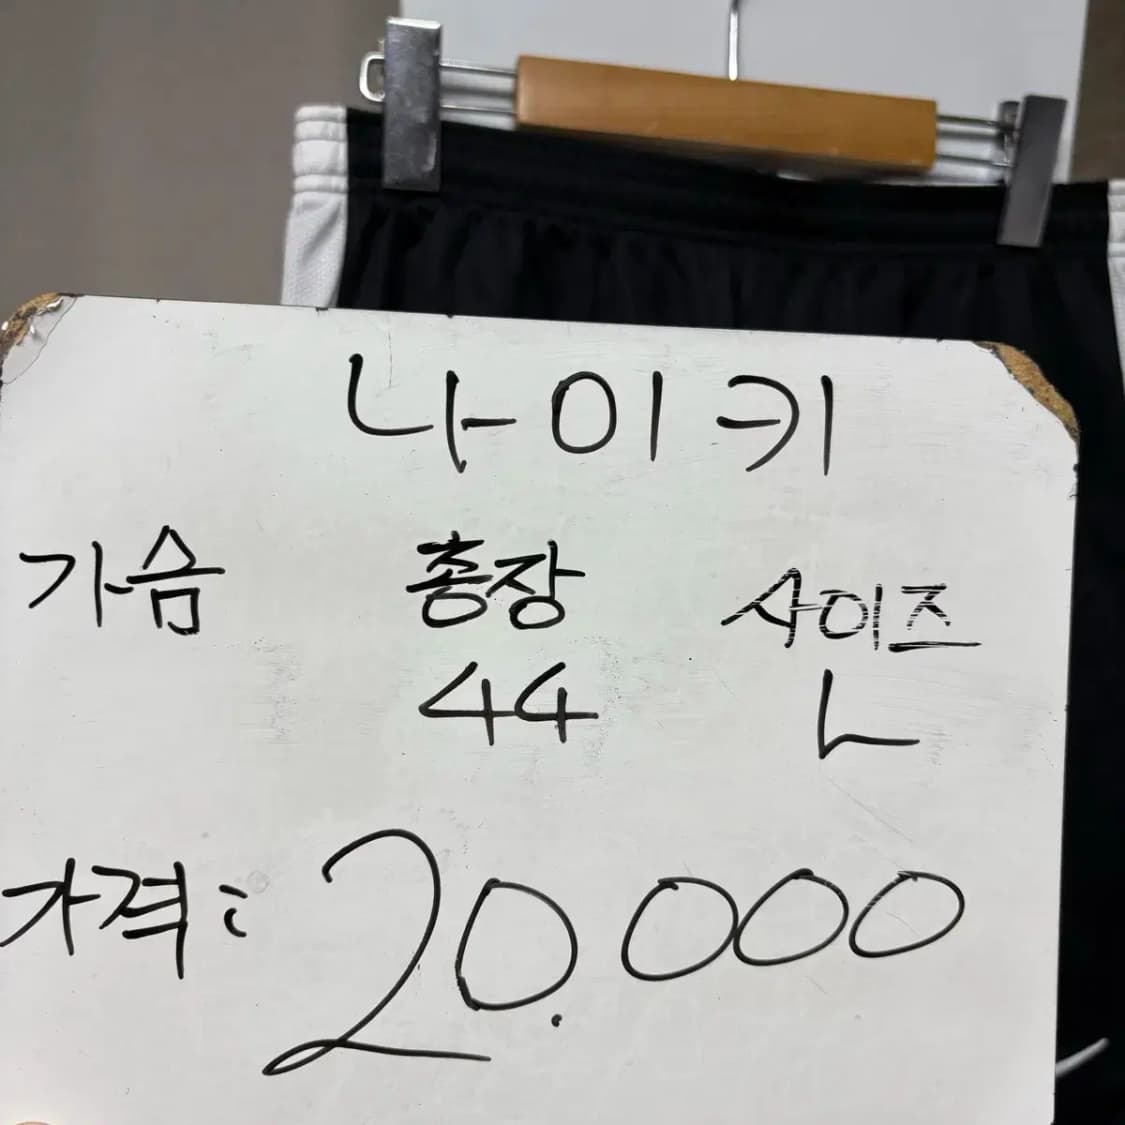 나이키
가슴 총장 사이즈
44 L
가격: 20.000